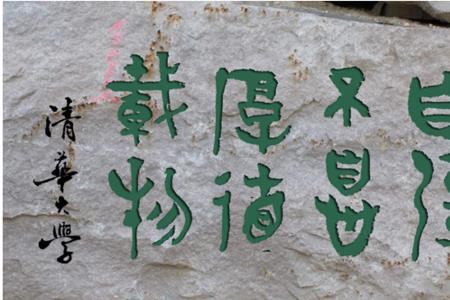 自强
不息
厚德
載物
清華大學